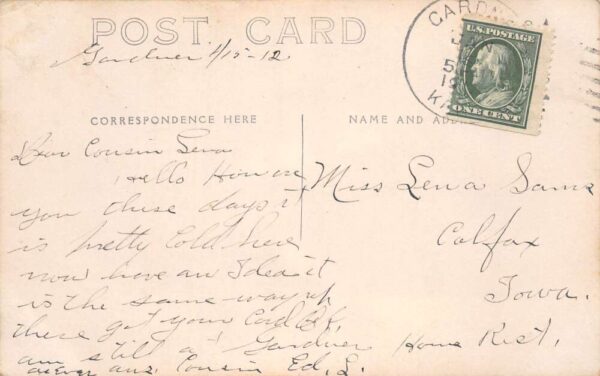 POST CARD
Gardner 1/15-12
GARDNER
KA
U.S. POSTAGE
ONE CENT
CORRESPONDENCE HERE
NAME AND ADD
Dear Cousin Lena
Hello How are
you these days it
is pretty Cold here
now have an Idea it
is the same way up
there got your Card O.K.
am still at Gardner Home Rest.
ans. Cousin Ed. L.
Miss Lena Sams
Colfax
Iowa.